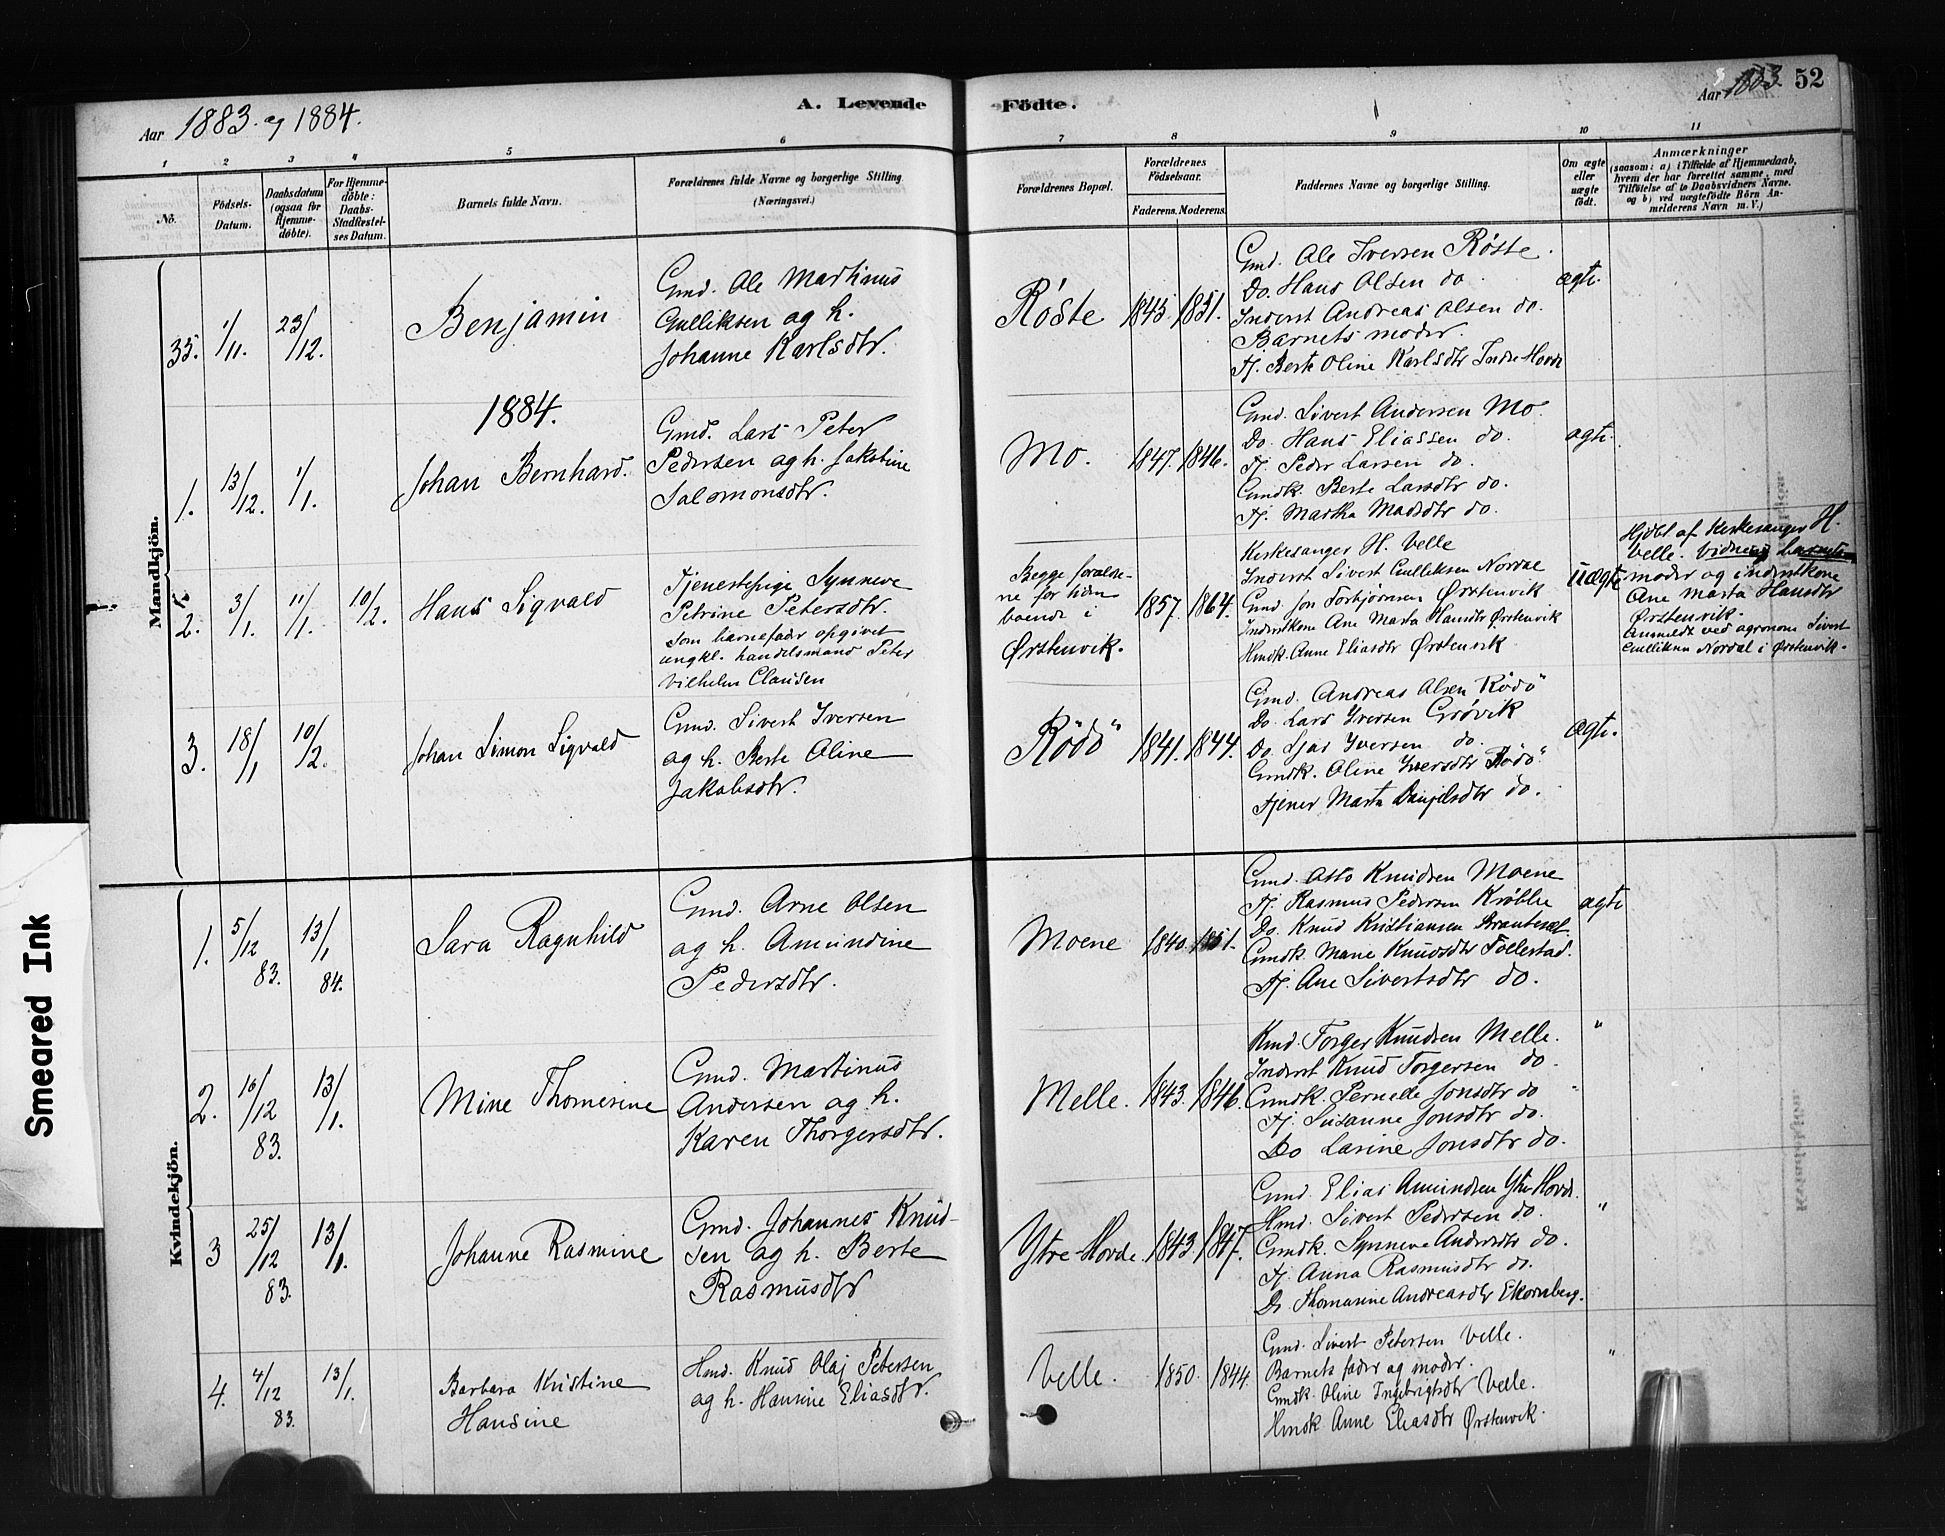 Aar 1883 og 1884.
A. Levende Födte.
Aar 1883 52
1 2 3 4 5 6 7 8 9 10 11
No.
Födsels-Datum.
Daabsdatum (ogsaa for Hjemme-döbte).
For Hjemme-döbte: Daabs-Stadfæstelses Datum.
Barnets fulde Navn.
Forældrenes fulde Navne og borgerlige Stilling (Næringsvei.)
Forældrenes Bopæl.
Forældrenes Födselsaar.
Faderens. Moderens.
Faddernes Navne og borgerlige Stilling.
Om ægte eller uægte födt.
Anmærkninger
(saasom: a) i Tilfælde af Hjemmedaab,
hvem der har forrettet samme, med
Tilföielse af to Daabsvidners Navne.
og b) ved uægtefödte Börn An-
melderens Navn m. V.)
Mandkjön.
35. 1/11. 23/12. Benjamin
Gmd. Ole Martinus
Gulliksen og h.
Johanne Karlsdtr.
Røste 1845. 1851.
Gmd. Ole Iversen Røste.
Do. Hans Olsen do
Inderst Andreas Olsen do.
Barnets moder.
Tj. Berte Oline Karlsdtr Indre Hovde
ægte.
1884.
1. 13/12. 1/1. Johan Bernhard.
Gmd. Lars Peter
Pedersen og h. Jakobine
Salomonsdtr.
Mo. 1847. 1846.
Gmd. Sivert Andersen Mo.
Do. Hans Eliassen do.
Tj. Peder Larsen do.
Gmdk. Berte Larsdtr do.
Tj. Martha Madsdtr do.
ægte.
2. 3/1. 11/1. 10/2. Hans Sigvald
Tjenestepige Synneve
Petrine Petersdtr.
Som barnefader opgivet
ungkl. handelsmand Peter
Vilhelm Clausen
Begge forældre-
ne for tiden
boende i
Ørstenvik.
1857. 1864.
Kirkesanger H. Velle
Inderst Sivert Gulliksen Nordal
Gmd. Jon Torbjørnsen Ørstenvik
Inderstkone Ane Marta Hansdtr Ørstenvik
Hmdk. Anne Eliasdtr Ørstenvik
Uægte
Hjdbt af Kirkesanger H.
Velle. Vidner: barnets
moder og inderstkone
Ane Marta Hansdtr
Ørstenvik.
Anmeldt ved agronom Sivert
Gulliksen Nordal i Ørstenvik.
3. 18/1 10/2. Johan Simon Sigvald
Gmd. Sivert Iversen
og h. Berte Oline
Jakobsdtr.
Rödö 1841. 1844.
Gmd. Andreas Olsen Rödö
Do. Lars Iversen Grøvik
Do. Iversen do.
Gmdk. Oline Iversdtr Rödö
Tjener Marta Danielsdtr do.
ægte.
Kvindekjön.
1. 5/12 83. 13/1 84. Sara Ragnhild
Gmd. Arne Olsen
og h. Amundine
Pedersdtr.
Moene 1840. 1851.
Gmd. Otto Knudsen Moene
Tj. Rasmus Pedersen
Do. Knud Kristiansen
Gmdk. Marie Knudsdtr Follestad.
Tj. Ane Sivertsdtr do.
ægte
2. 16/12 83. 13/1. Mine Thomesine
Gmd. Martinus
Andersen og h.
Karen Thorgersdtr.
Melle. 1843. 1846.
Kmd. Torger Knudsen Melle.
Inderst Knud Torgersen do.
Gmdk. Pernele Jonsdtr do
Tj. Susanne Jonsdtr do.
Do Larine Jonsdtr do.
"
3 25/12 83. 13/1. Johanne Rasmine
Gmd. Johannes Knud-
sen og h. Berte
Rasmusdtr
Ytre-Hovde. 1843. 1847.
Gmd. Elias Amundsen Ytre Hovde.
Hmd. Sivert Pedersen do.
Gmdk. Synneve Andersdtr do.
Tj. Anna Rasmusdtr do.
Do. Thomasine Andreasdtr Ekornberg.
"
4. 4/12 83. 13/1. Barbara Kristine
Hansine
Hmd. Knud Olaj Petersen
og h. Hansine Eliasdtr.
Velle. 1850. 1844.
Gmd. Sivert Petersen Velle.
Barnets fader og moder.
Gmdk. Oline Ingebrigtsdtr Velle.
Hmdk Anne Eliasdtr Ørstenvik.
"
Smeared Ink